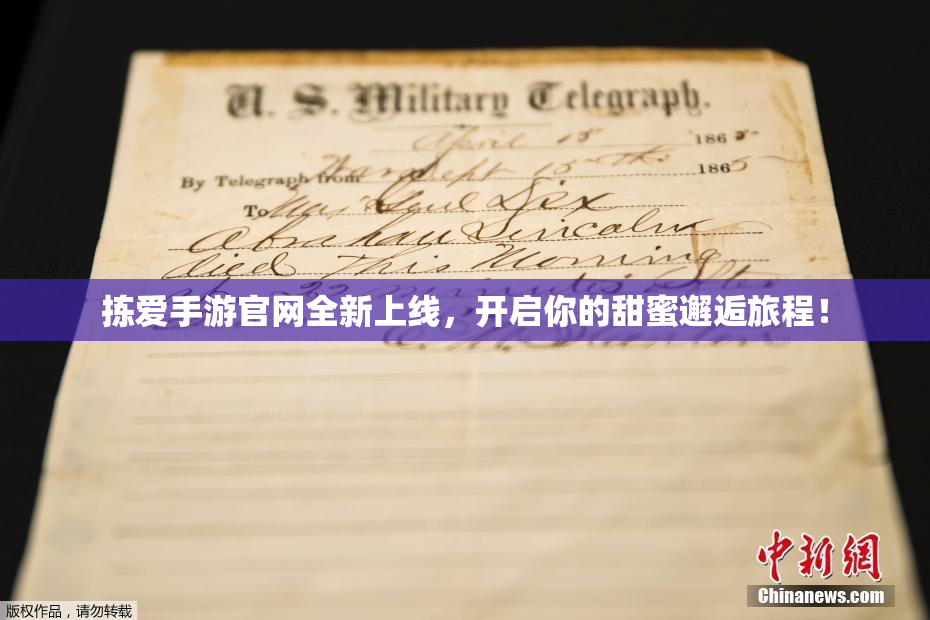 U. S. Military Telegraph.
April 15 1865
By Telegraph from War Dept 15th 1865
To Maj Genl Dix
Abraham Lincoln
died This Morning
at 22 minutes after
拣爱手游官网全新上线，开启你的甜蜜邂逅旅程！
E. M. Stanton
中新網
Chinanews.com
版权作品，请勿转载